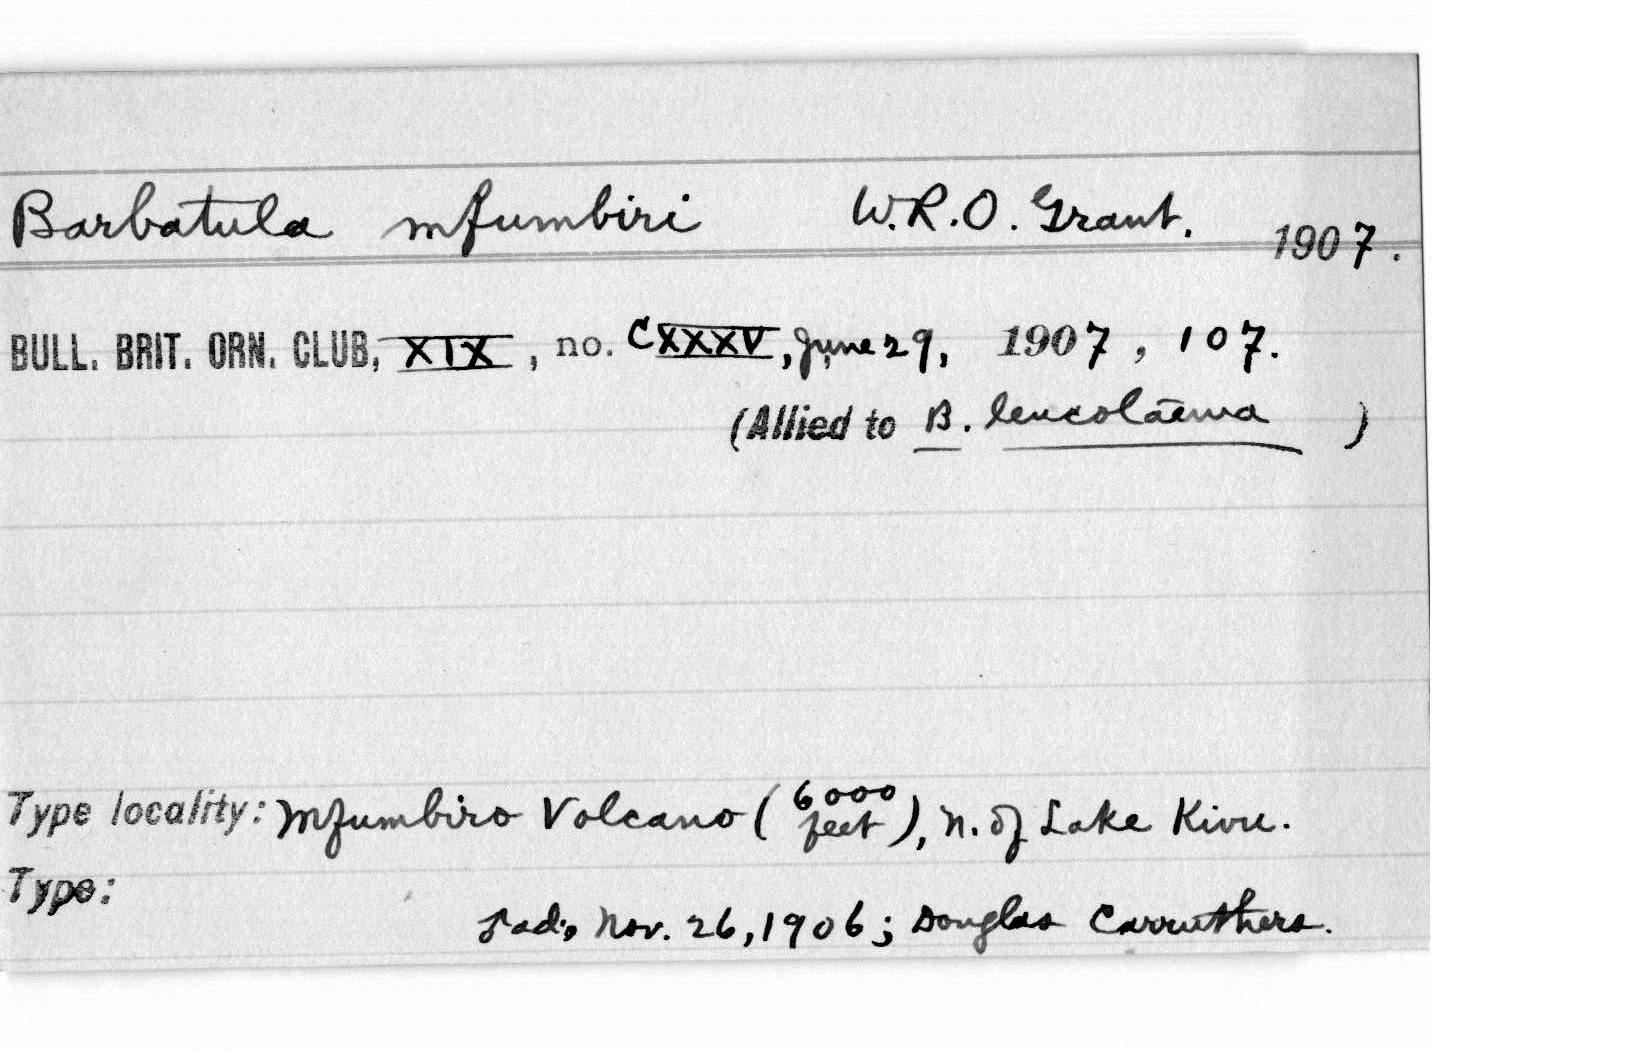 Barbatula mfumbiri W.R.O. Grant. 1907.
BULL. BRIT. ORN. CLUB, XIX, no. CXXXV, June 29, 1907, 107.
(Allied to B. leucolaema)
Type locality: Mfumbiro Volcano (6000 feet), N. of Lake Kivu.
Type:
ad., Nov. 26, 1906; Douglas Carruthers.